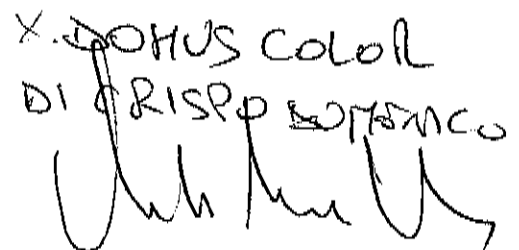 X. DOMUS COLOR
DI CRISPO DOMENICO